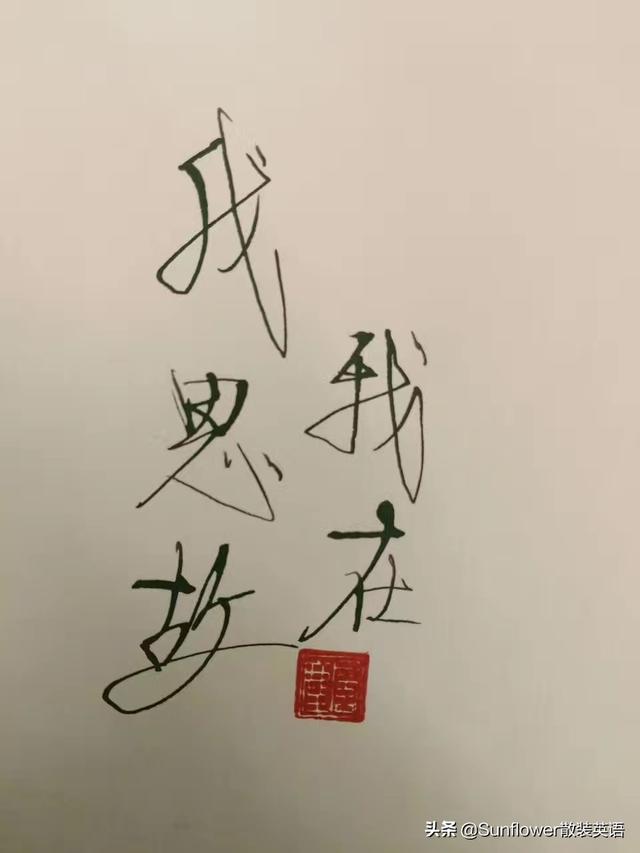 我思故
我在
头条 @Sunflower散装英语